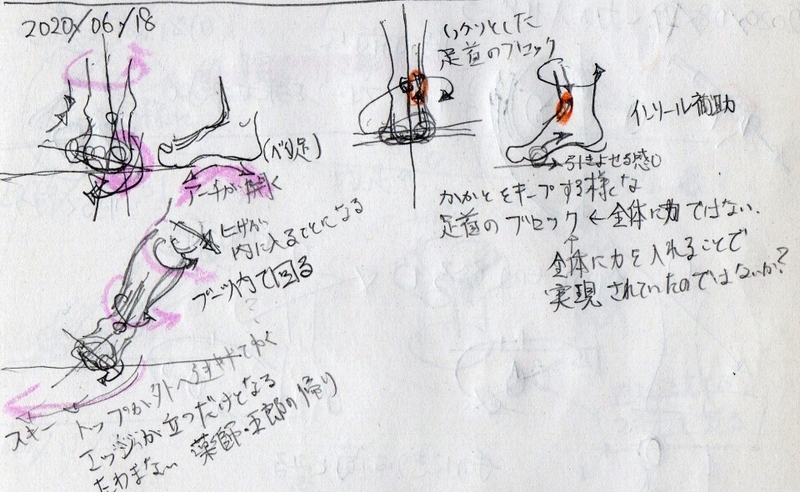 2020/06/18
しっかりとした
足首のブロック
(ベタ足)
アーチが開く
インソール補助
引きよせる感じ
かかとをキープする様な
足首のブロック ← 全体に力ではない.
全体に力を入れることで
実現されていたのではないか?
ヒザが
内に入ることになる
ブーツ内で回る
?
スキー
トップが外へ
エッジが立つだけとなる
たわまない 薬師・五郎の帰り